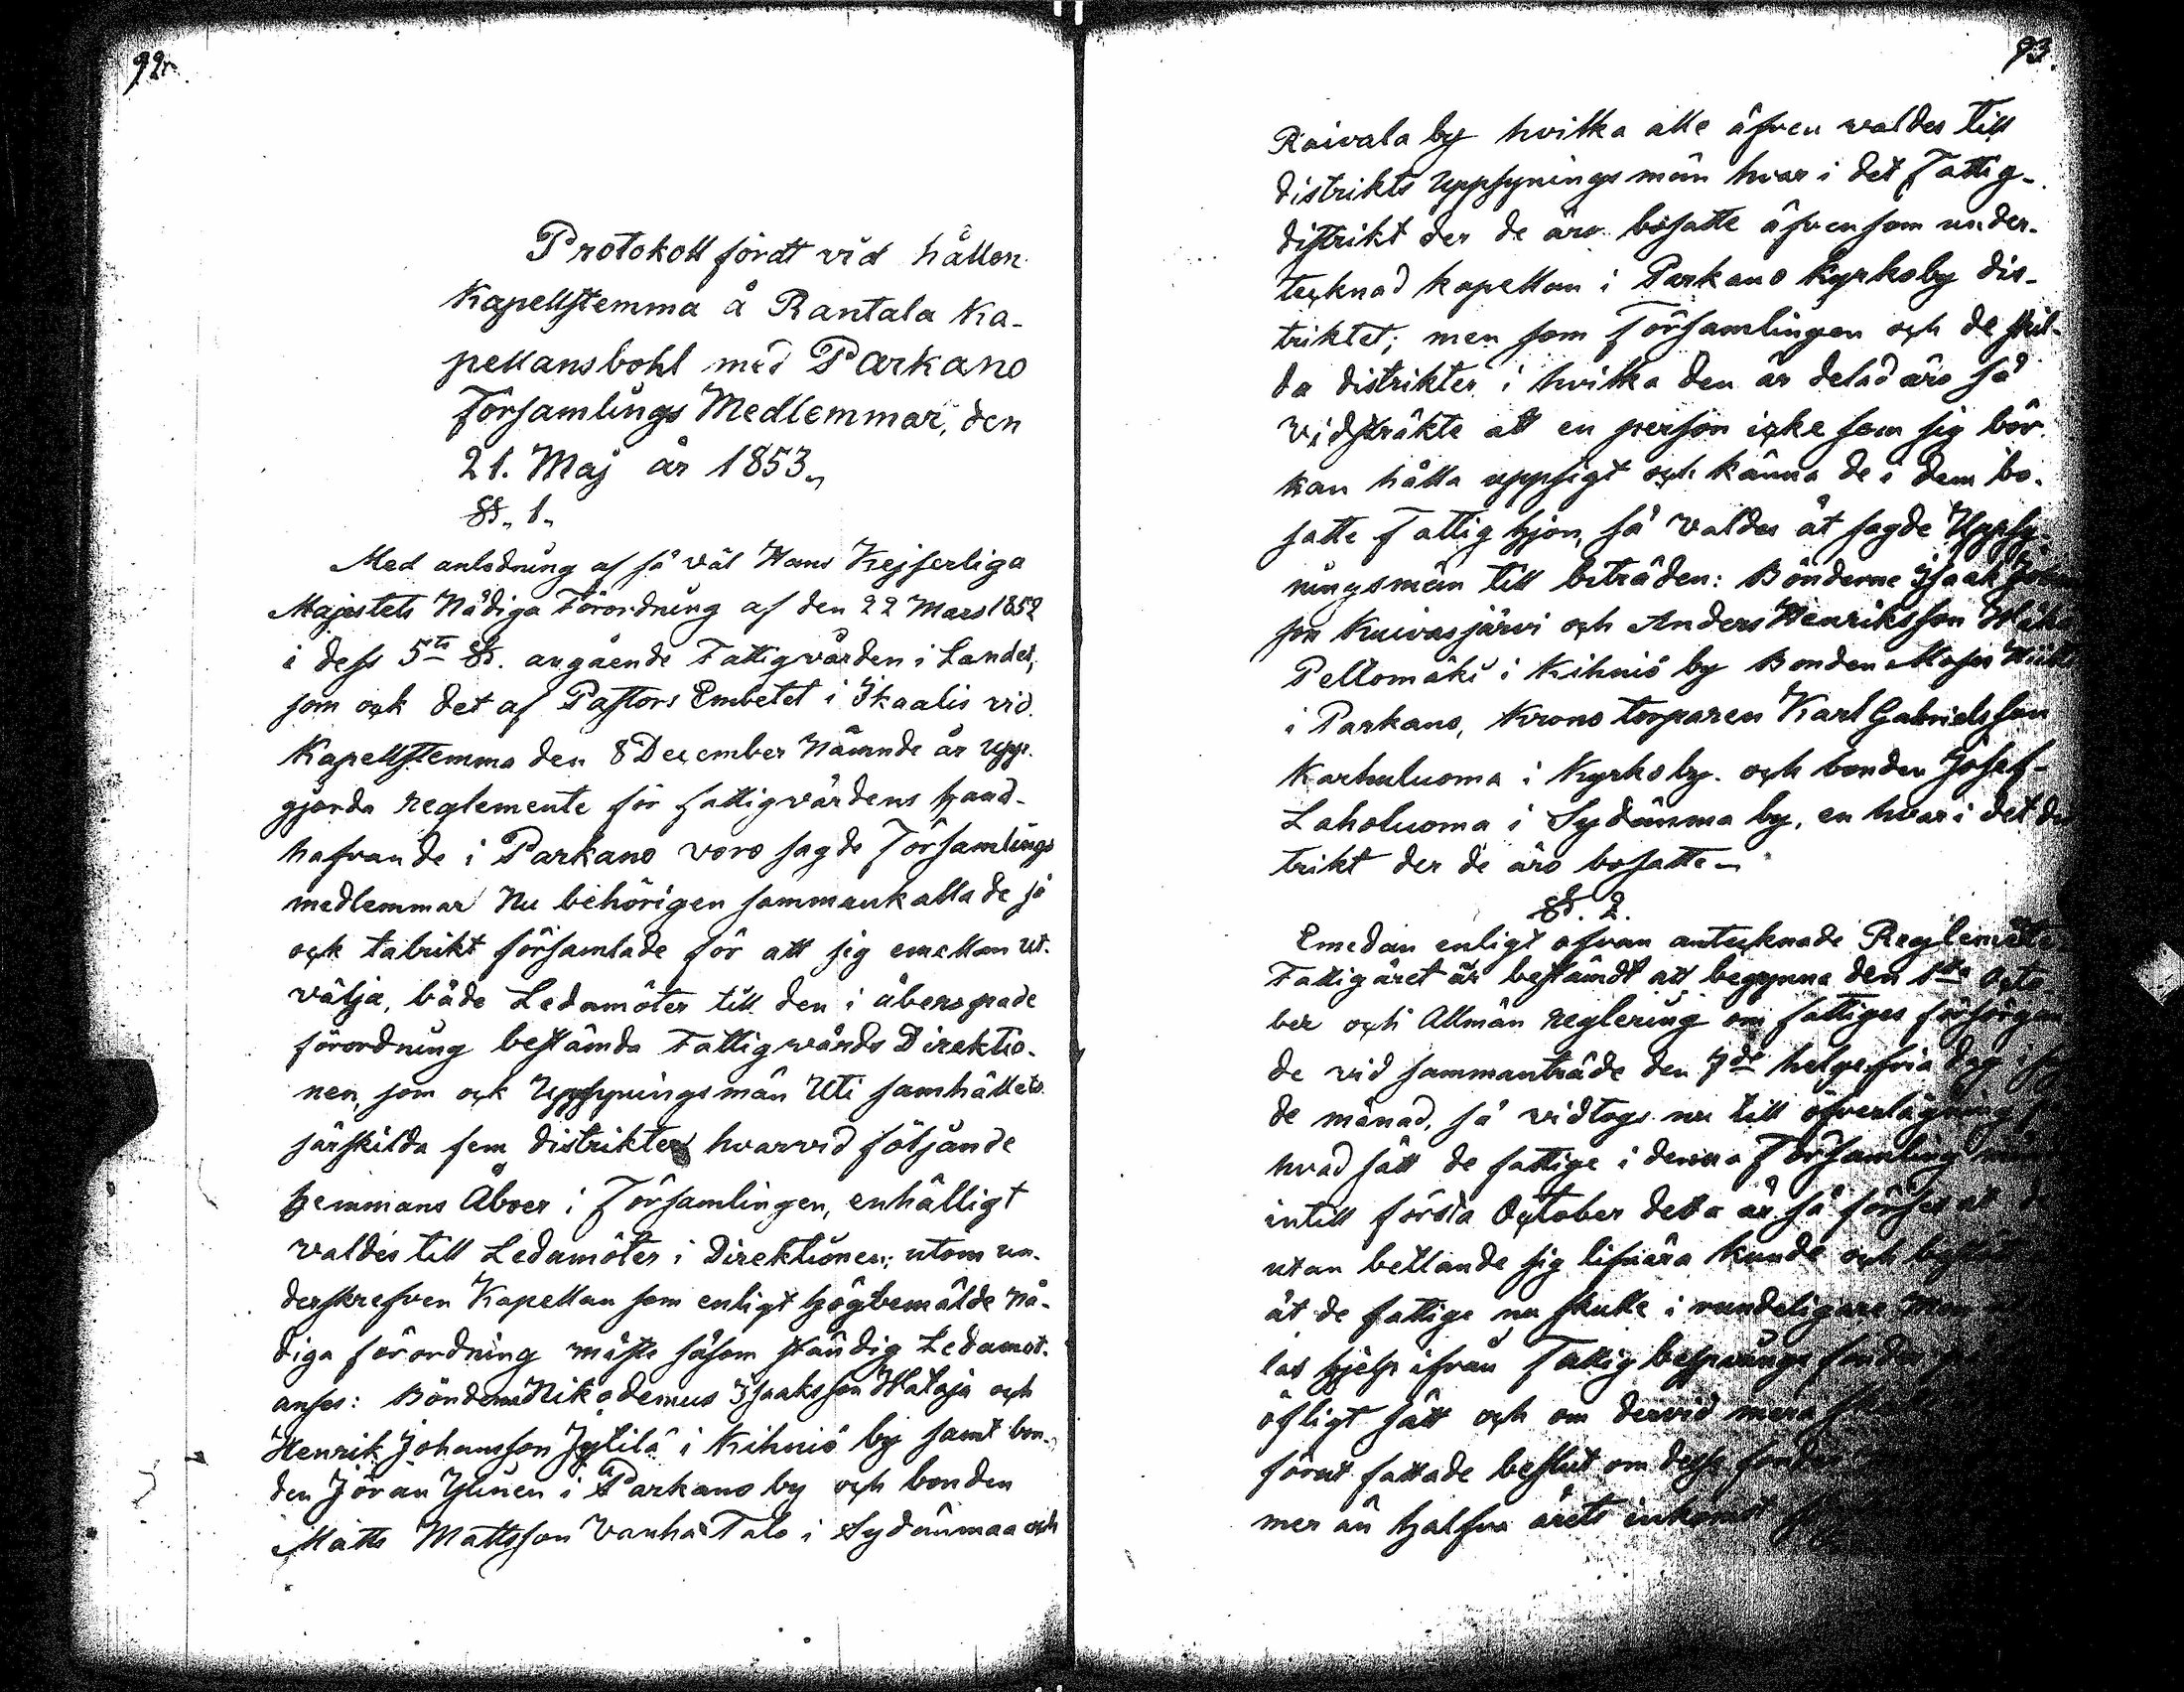 92.
Protokoll fördt vid hållen
Kapellstemma å Rantala Ka-
pellansbohl med Parkano
Församlings Medlemmar, den
21. Maj år 1853.
§. 1.
Med anledning af så väl Hans Kejserliga
Majestets Nådiga Förordning af den 22 Mars 1852
i dess 5te §. angående Fattigvården i Landet,
som ock det af Pastors Embetet i Ikaalis vid
Kapellstemma den 8 December nämnde år upp-
gjorda reglemente för fattigvårdens hand-
hafvande i Parkano voro sagde Församlings
medlemmar nu behörigen sammankallade så
ock talrikt församlade för att sig emellan ut-
välja, både Ledamöter till den i åberopade
förordning bestämda Fattigvårds Direktio-
nen, som ock Uppsyningsmän uti samhällets
särskilda fem distrikter hvarvid följande
hemmans Åboer i Församlingen, enhälligt
valdes till Ledamöter i Direktionen; utom un-
derskrefven Kapellan som enligt högbemälde Nå-
diga förordning måste såsom ständig Ledamot
anses: Bönderne Nikodemus Isaksson Hataja och
Henrik Johansson Jytilä i Kihniö by samt bon-
den Jöran Ylinen i Parkano by och bonden
Matts Mattsson Vanha Talo i Sydänmaa och
93.
Raivala by hvilka alle äfven valdes till
distrikts Uppsyningsmän hvar i det Fattig-
distrikt der de äro bosatte äfvensom under-
tecknad kapellan i Parkano Kyrkoby dis-
triktet; men som Församlingen och de skil-
da distrikter i hvilka den är delad äro så
vidsträkte att en person icke som sig bör
kan hålla uppsigt och känna de i dem bo-
satte Fattighjon, så valdes åt sagde Uppsy-
ningsmän till biträden: Bönderne Isaak
son Kuivasjärvi och Anders Henriksson
Peltomäki i Kihniö by Bonden Moses
i Parkano, Krono torparen Karl Gabrielsson
Karhuluoma i Kyrkoby. och bonden Josef
Laholuoma i Sydänmaa by, en hvar i det dis
trikt der de äro bosatte.
§. 2.
Emedan enligt ofvan antecknade Reglemente
Fattigåret är bestämdt att begynna den 1sta Octo-
ber och Allmän reglering om fattiges försörgan
de vid sammanträde den 7de helgefria dag i
de månad, så vidtogs nu till öfverläggning
hvad sätt de fattige i denna Församling
intill första October detta år så förses at
utan bettlande sig lifnära kunde och
åt de fattige nu skulle i vandeligare
las hjelp ifrån Fattig besparings fonden
öfligt sätt och om dervid mera
förut fattade beslut om dess fonder
mer än halfva årets inkomst